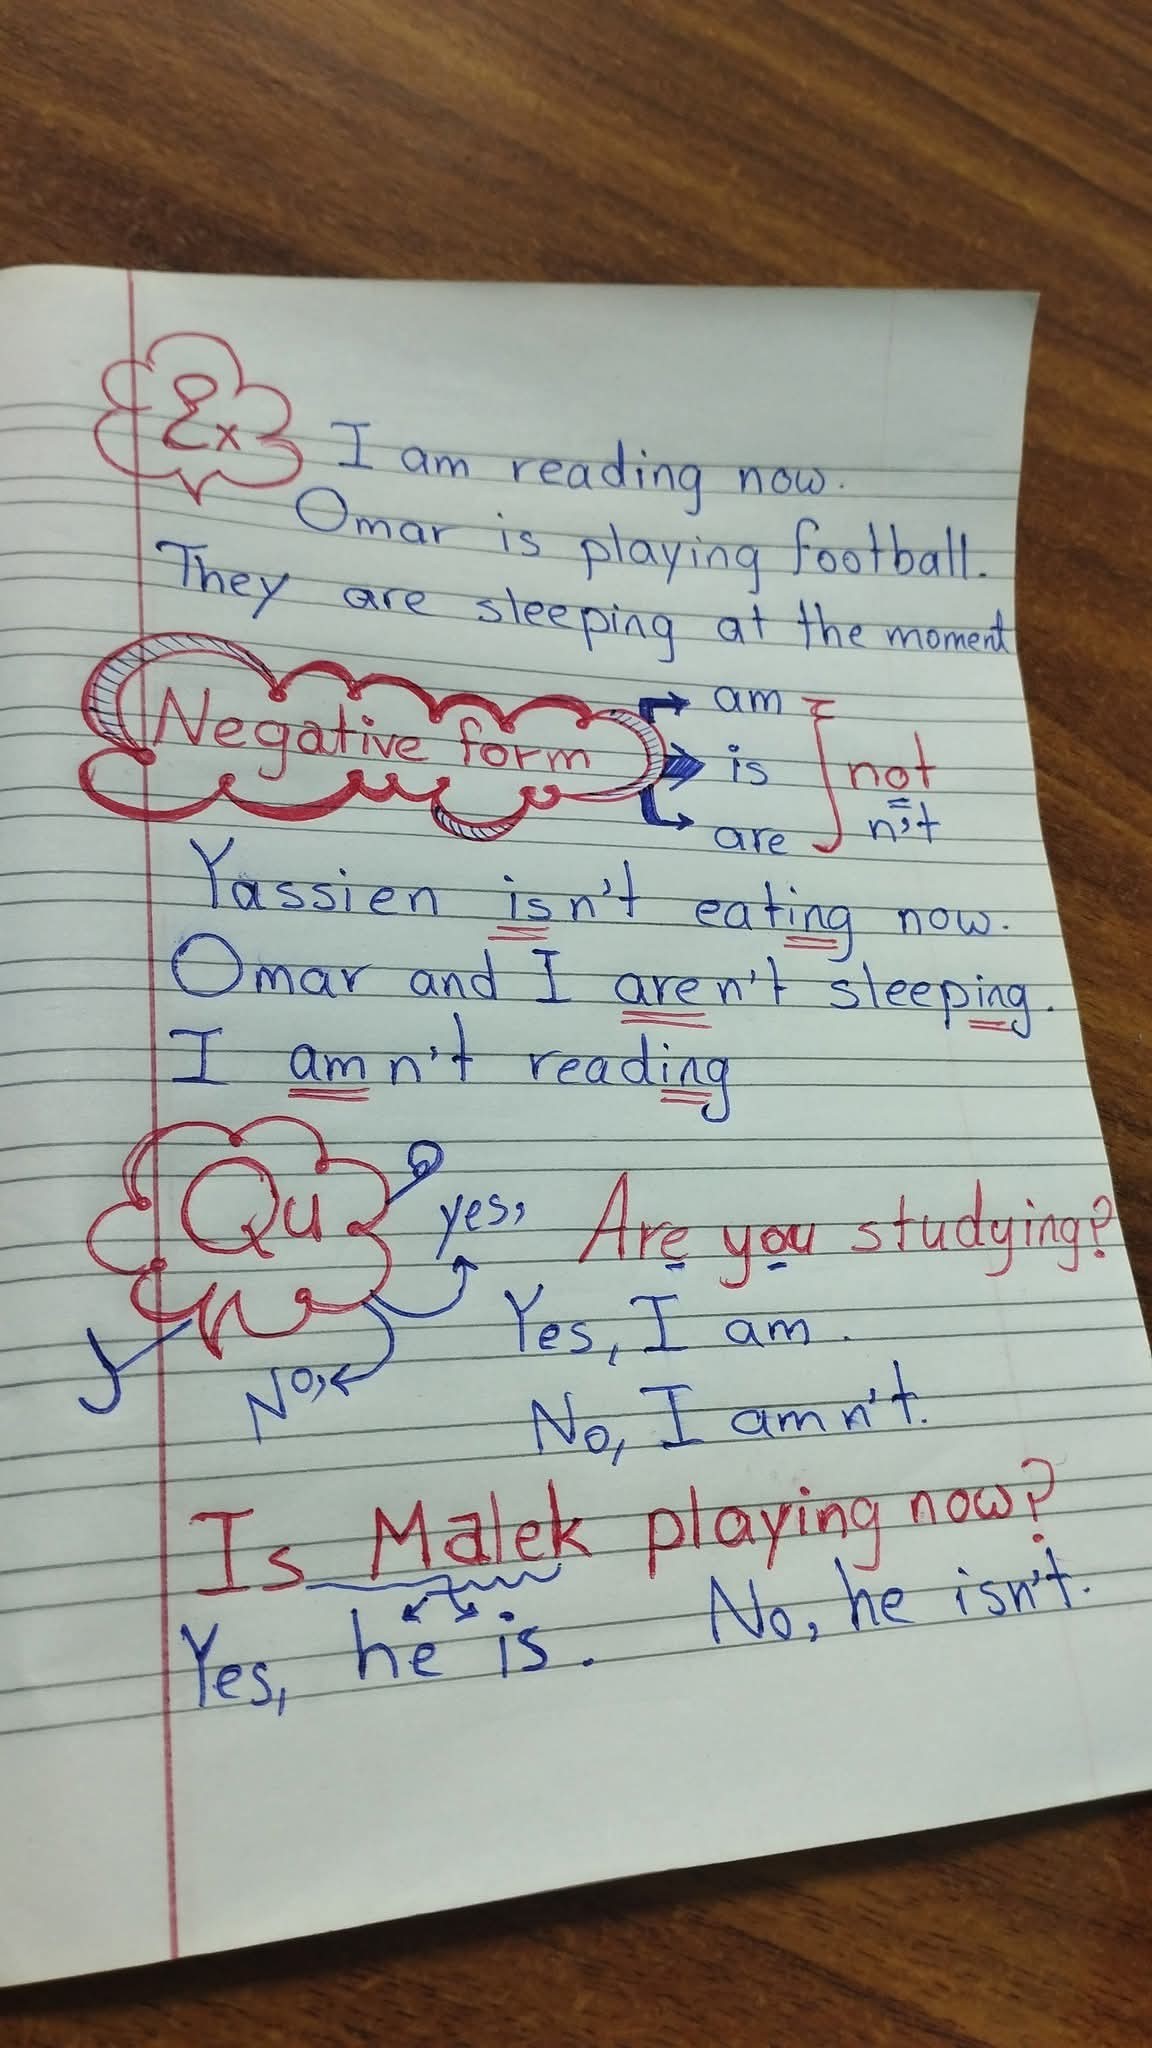 Ex I am reading now.
Omar is playing football.
They are sleeping at the moment
Negative form
am
is
are
not
n't
Yassien isn't eating now.
Omar and I aren't sleeping.
I amn't reading
Qu
yes,
No,
Are you studying?
Yes, I am.
No, I amn't.
Is Malek playing now?
Yes, he is. No, he isn't.